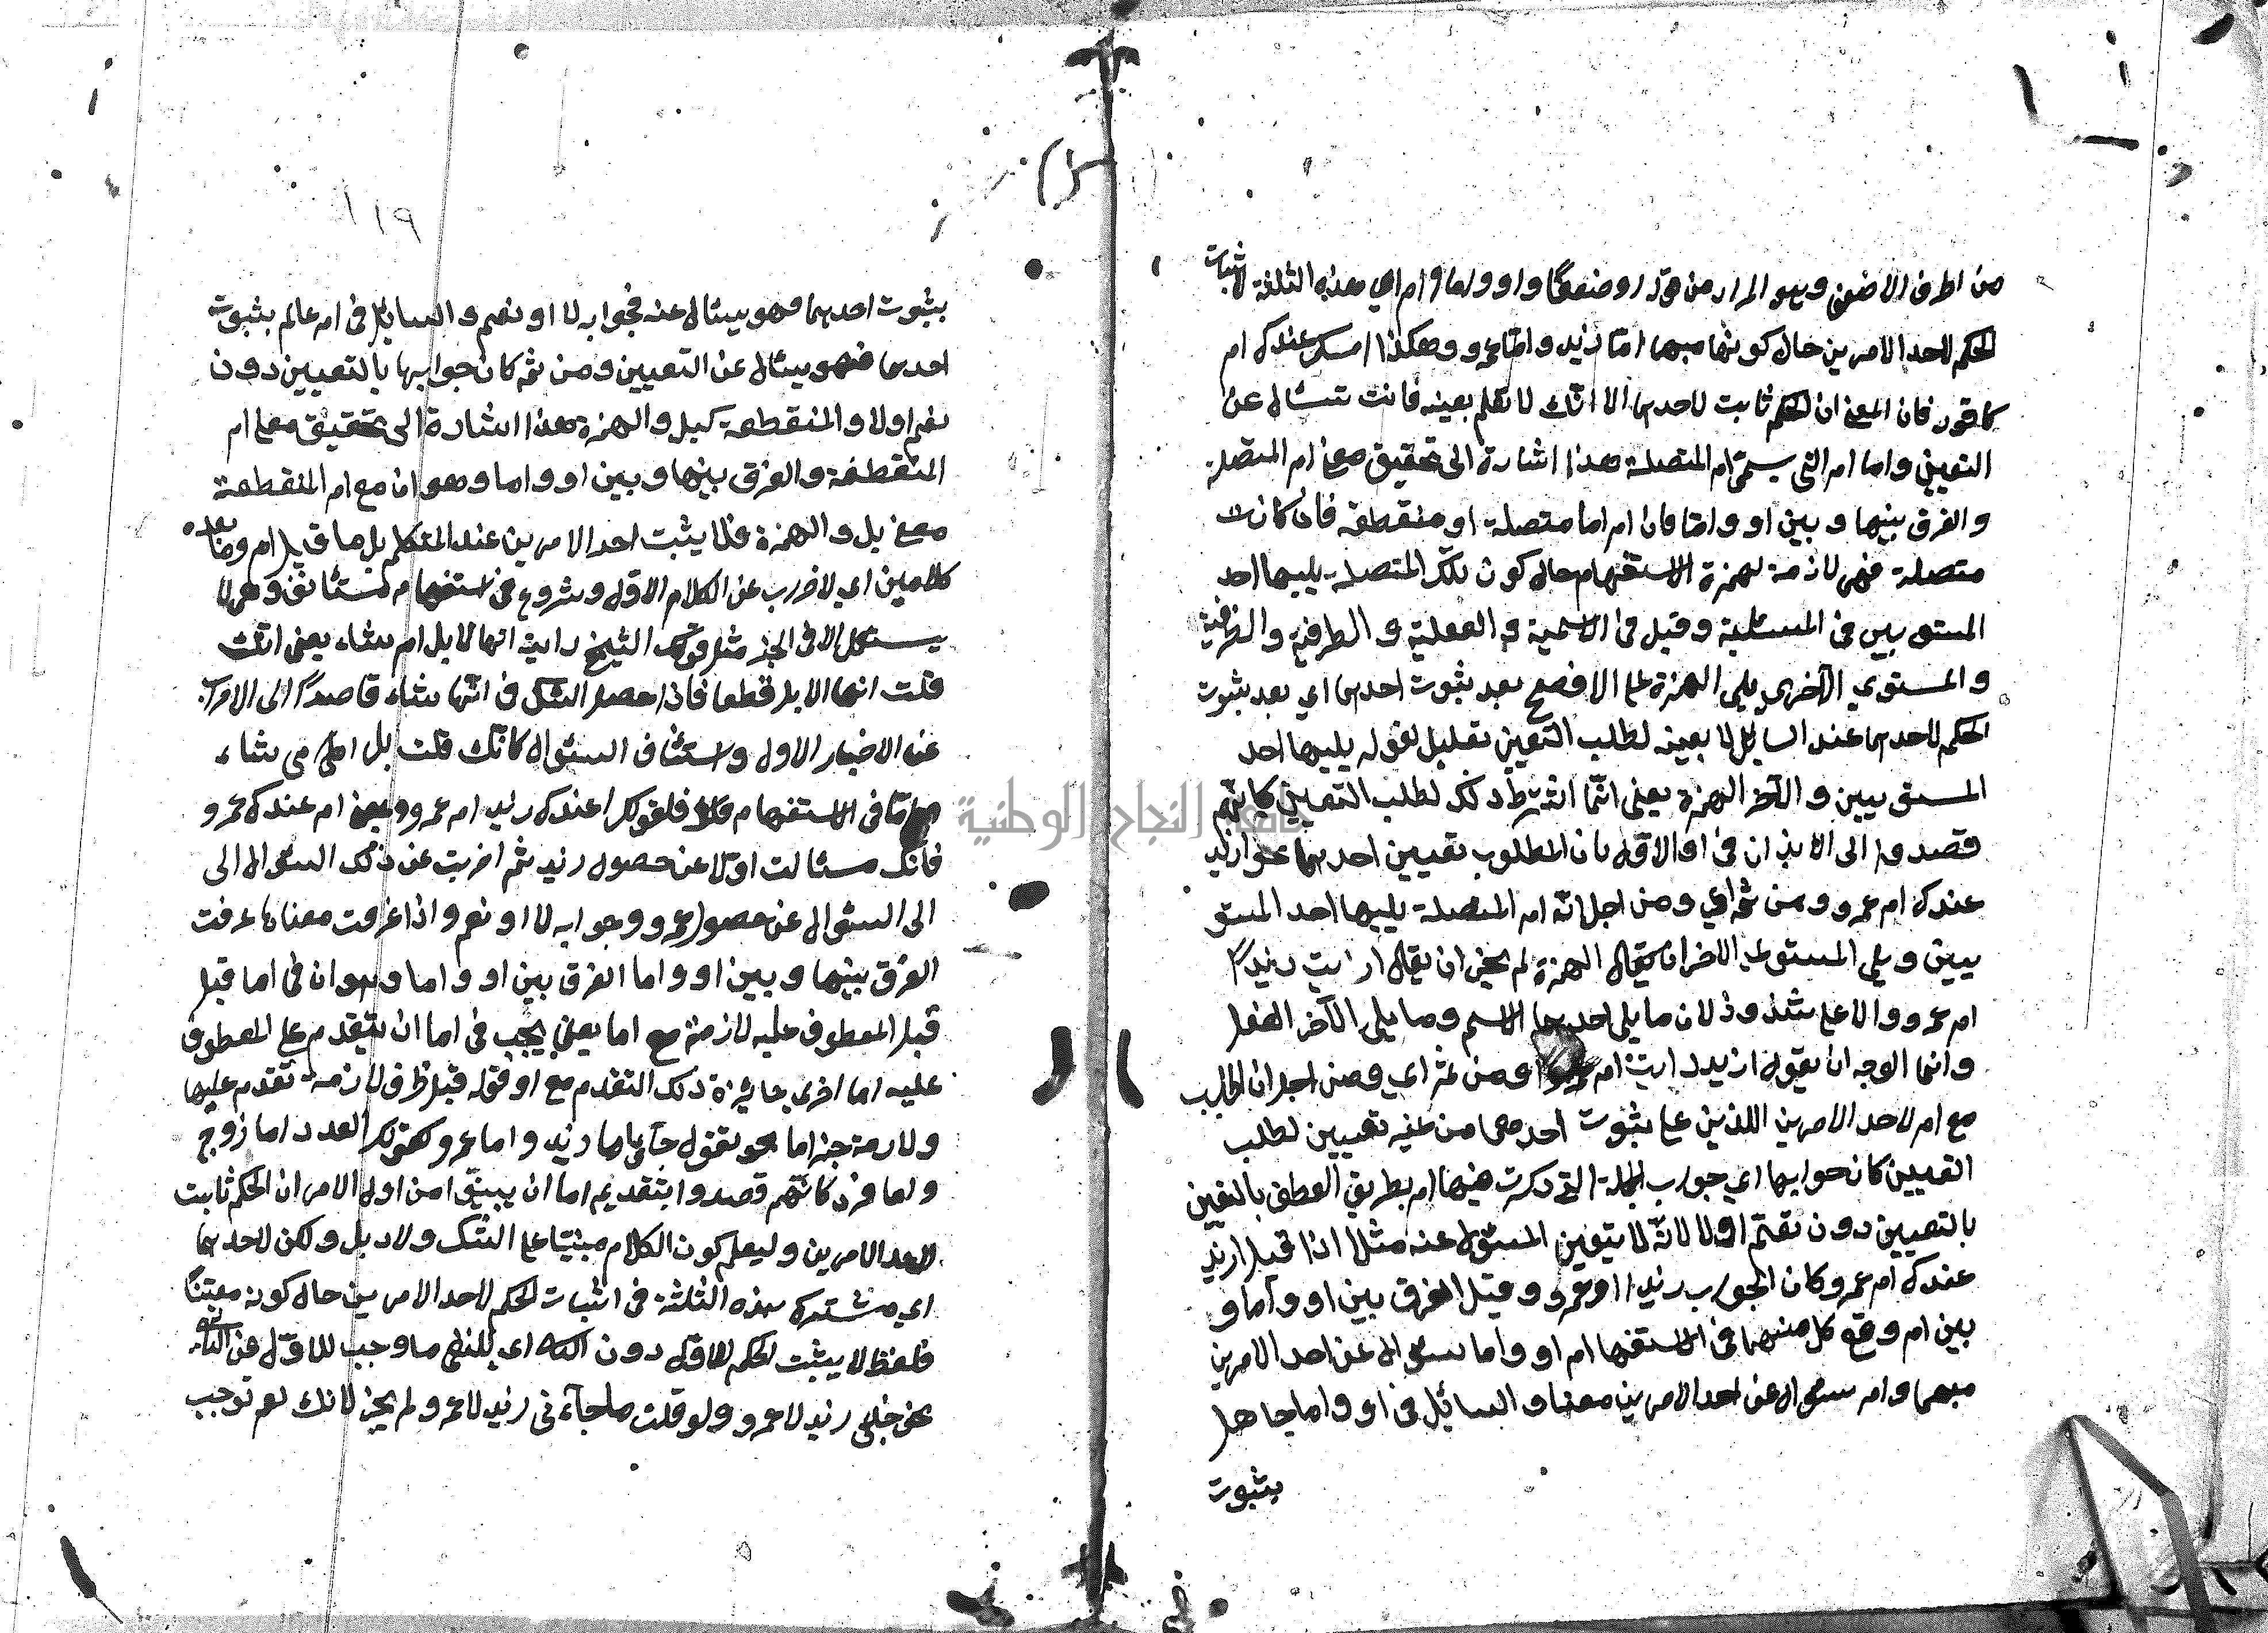 من اطرف الاضعف وهو المراد من قوله او ضعفها واو واما وام اي هذه الثلثة لاثبات
الحكم لاحد الامرين حال كونها مبهما اما زيد واما عمرو وهكذا عندك ام
فان المعنى ان الحكم ثابت لاحدهما الا انك لا تعلم بعينه فانت تسئال عن
التعيين واما ام التي سمي ام المتصلة هذا اشارة الى تحقيق معنى ام المتصلة
والفرق بينها وبين او واما فان ام اما متصلة او منقطعة فان كانت
متصلة فهي لازمة لهمزة الاستفهام حال كون تلك المتصلة يليها احد
المستويين في المسئلية وقيل في الاسمية والفعلية و الطرفية والظرفية
والمستوي الآخر يلي الهمزة على الافصح بعد ثبوت احدهما اي بعد ثبوت
الحكم لاحدهما عند السائل لا بعينه لطلب التعيين تعليل لقوله يليها احد
المستويين والآخر الهمزة يعني انما اشترط ذلك لطلب التعيين كانهم
قصدوا الى الايذان في اول الاول بان المطلوب تعيين احدهما نحو ازيد
عندك ام عمرو ومن ثم اي ومن اجل انه ام المتصلة يليها احد المستو
يين ويلي المستوي الاخر الهمزة لم يجز ان يقال ارايت زيدا
ام عمرو والا على شذوذ لان ما يلي احدهما الاسم وما يلي الآخر الفعل
وانما الوجه ان يقول ازيدا رايت ام ومن ثم اي ومن اجل ان الطلب
مع ام لاحد الامرين اللذين على ثبوت احدهما من غير تعيين لطلب
التعيين كان جوابها اي جواب الجملة التي ذكرت فيها ام بطريق العطف بالتعيين
بالتعيين دون نعم او لا لانه لا يتعين المسئول عنه مثلا اذا قيل ازيد
عندك ام عمرو كان الجواب زيد او عمرو وقيل الفرق بين او واما و
بين ام وقع كل منهما في الاستفهام ام او واما سئوال عن احد الامرين
مبهما وام سئوال عن احد الامرين معينا والسائل في او واما جاهل
بثبوت
١١٩
بثبوت احدهما فهو يسئال عنه فجوابه لا او نعم والسايل في ام عالم بثبوت
احدهما فهو يسئال عن التعيين ومن ثم كان جوابها بالتعيين دون
نعم او لا والمنقطعة كبل والهمزة هذا اشارة الى تحقيق معنى ام
المنقطعة والفرق بينها وبين او واما وهو ان مع ام المنقطعة
معنى بل والهمزة فلا يثبت احد الامرين عند المتكلم بل ما قبل ام وما بعده
كلامين اي لاضرب عن الكلام الاول وشروع في استفهام مستئانف وهي لا
يستعمل الا في الخبر مثل قولك الشيخ رايت انها لابل ام شاء يعني انك
قلت انها لابل قطعا فاذا حصل الشك في انها شاء قاصدا الى الاضراب
عن الاخبار الاول واستئناف السئوال كانك قلت بل اهي شاء
واما في الاستفهام فلا فلقولك اعندك زيد ام عمرو وبمعنى ام عندك عمرو
فانك سئالت اولا عن حصول زيد ثم اضربت عن ذلك السئوال الى
الى السئوال عن حصول عمرو وجوابه لا او نعم واذا عرفت معناها عرفت
الفرق بينها وبين او واما الفرق بين او واما وهو ان في اما قبل
قبل المعطوف عليه لازمة مع اما يعني يجب في اما ان يتقدم على المعطوف
عليه اما اخرى جائزة ذلك التقدم مع او قوله قبل ظرف لازمة تقدم عليها
ولازمة خبر اما نحو تقول جآني اما زيد واما عمرو كقولك العدد اما زوج
واما فرد كانهم قصدوا بتقديم اما ان يبينوا من اول الامر ان الحكم ثابت
لاحد الامرين وليعلم كون الكلام مبنيا على الشك ولا وبل ولكن لاحدهما
اي مشتركة هذه الثلثة في اثبات الحكم لاحد الامرين حال كونه معينا
فلفظ لا يثبت الحكم للاول دون الثاني اي لنفي ما وجب للاول عن الثاني
نحو جاءني زيد لا عمرو ولو قلت ما جآءني زيد لا عمرو لم يجز لانك لم توجب
جامعة النجاح الوطنية